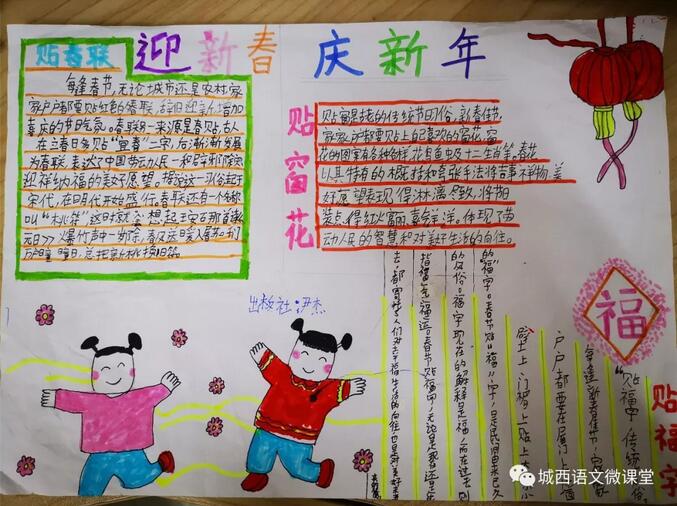 迎新春 庆新年
贴春联
每逢春节,无论城市还是农村家
家户户都要贴红色的春联,辞旧迎新,增加
喜庆的节日气氛。春联另一来源是春贴,古人
在立春日多贴"宜春"二字,后渐渐发展
为春联,表达了中国劳动人民一和辟邪除
迎祥纳福的美好愿望。据说这一习俗起于
宋代,在明代开始盛行,春联还有一个名称
叫"桃符"这时就会想起王安石那首诗
元日>>爆竹声中一岁除,春风送暖入屠苏。千门
万户曈曈日,总把新桃换旧符。
贴窗花
贴窗是我的传统节日习俗,新春佳节,
家家户都要贴上自己喜欢的窗花,窗
花的图案各种各样,花鸟鱼虫十二生肖等。春花
以其特有的概括和夸张手法将吉事祥物,美
好愿望表现得淋漓尽致,将节日
装点得红火富丽,喜气洋洋。体现了劳
动人民的智慧和对美好生活的向往。
出版社:伊杰
福
贴福字
"贴福字"传统
每逢新春佳节,家
户户都要在屋门上
壁上、门楣上贴上
的"福"字。春节贴"福"字,是民间由来已久
的风俗。福字现在的解释是福
指福气福运。春节贴福字,无论是
都寄托了人们对幸福生活的向往,也是对美好未来
城西语文微课堂